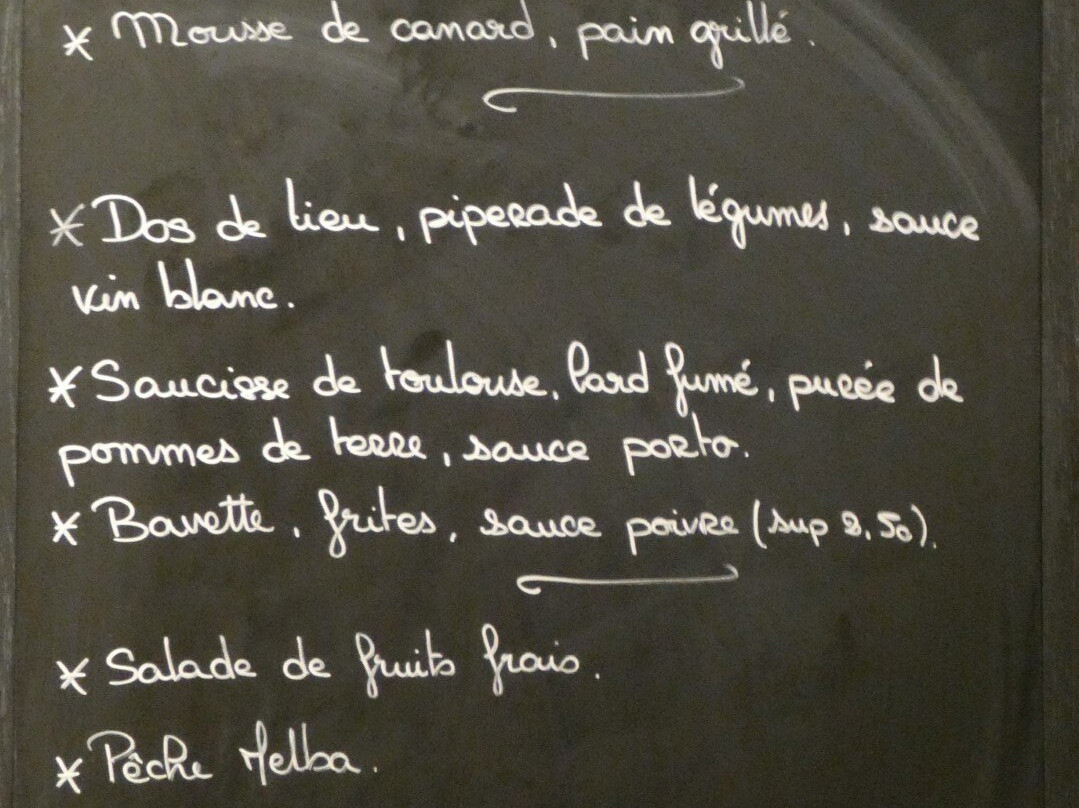 * Mousse de canard, pain grillé.
* Dos de lieu, piperade de légumes, sauce
vin blanc.
* Saucisse de toulouse, lard fumé, purée de
pommes de terre, sauce porto.
* Bavette, frites, sauce poivre (sup 2,50).
* Salade de fruits frais.
* Pêche Melba.